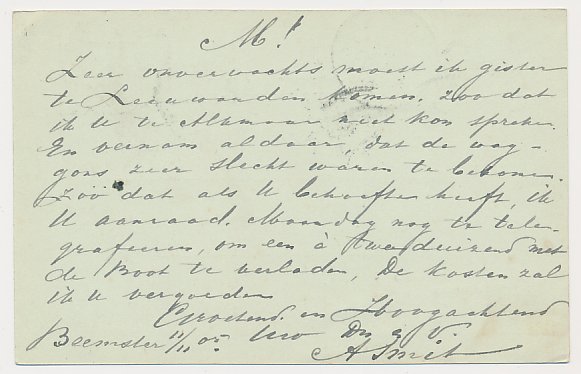 M!
Zeer onverwachts moest ik gister
te Leeuwarden komen, zoo dat
ik U te Alkmaar niet kon spreke.
En vernam aldaar, dat de wag-
gons zeer slecht waren te bekome.
Zoo dat als U behoefte heeft, ik
U aanraad. Maandag nog te tele-
grafeeren, om een à twee duizend met
de Boot te verladen, De kosten zal
ik U vergoeden
Groetend en Hoogachtend
Beemster 11/11 05. Uw Dr. e V.
A Smit